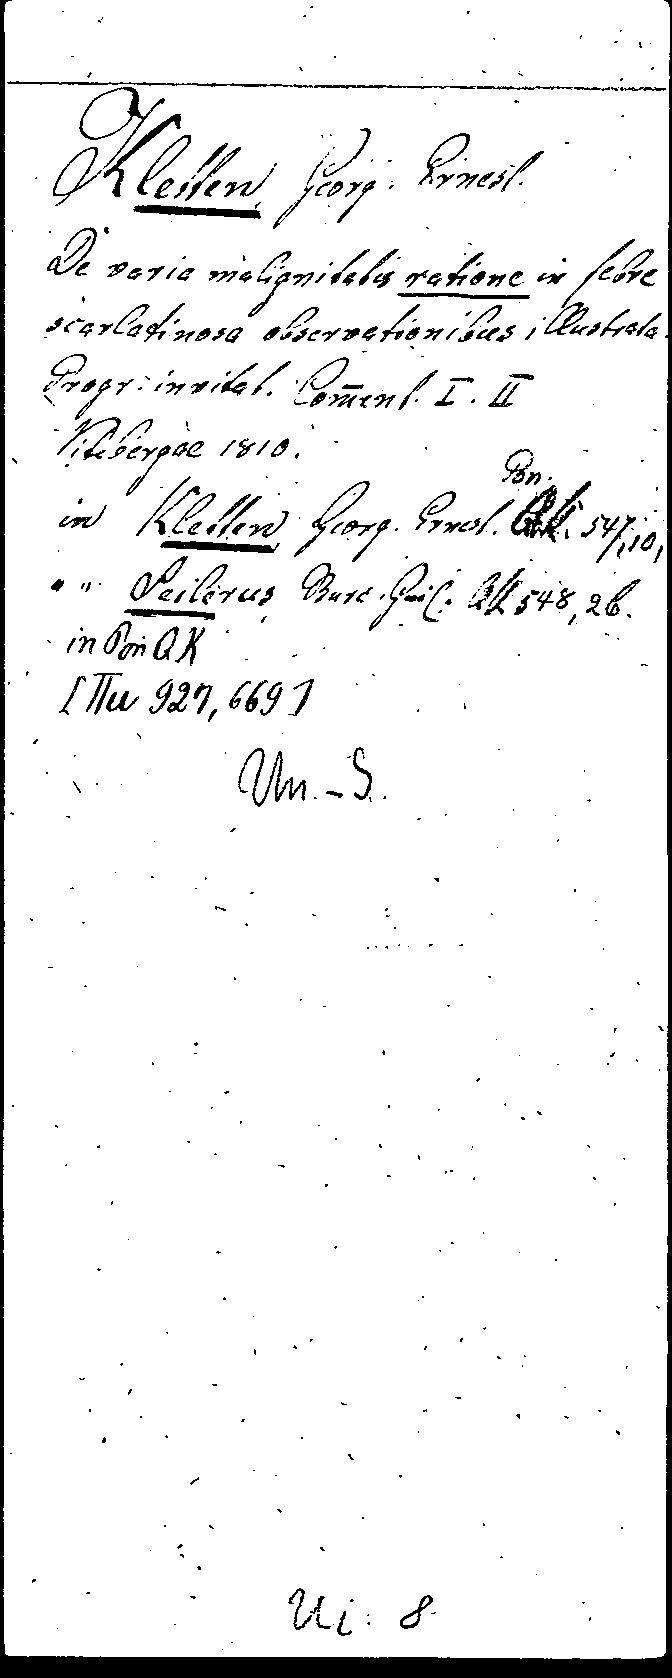 Kletten, Georg. Ernest.
De varia malignitatis ratione in febre
scarlatinosa observationibus illustrata.
Progr. invitat. Com̅ent. I. II
Vitebergae 1810.
Pon.
in Kletten, Georg. Ernest. QK. 547,10,
" " Seilerus, Burc. Guil. QK 548, 26.
in Pon QK
[Πu 927, 669]
Un.-S.
Ui. 8